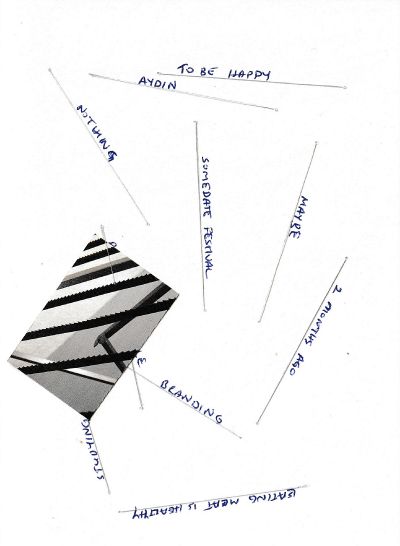 TO BE HAPPY
AYDIN
NOTHING
SOMEDATE FESTIVAL
MAYBE
2 MONTHS AGO
BRANDING
EATING MEAT IS HEALTHY